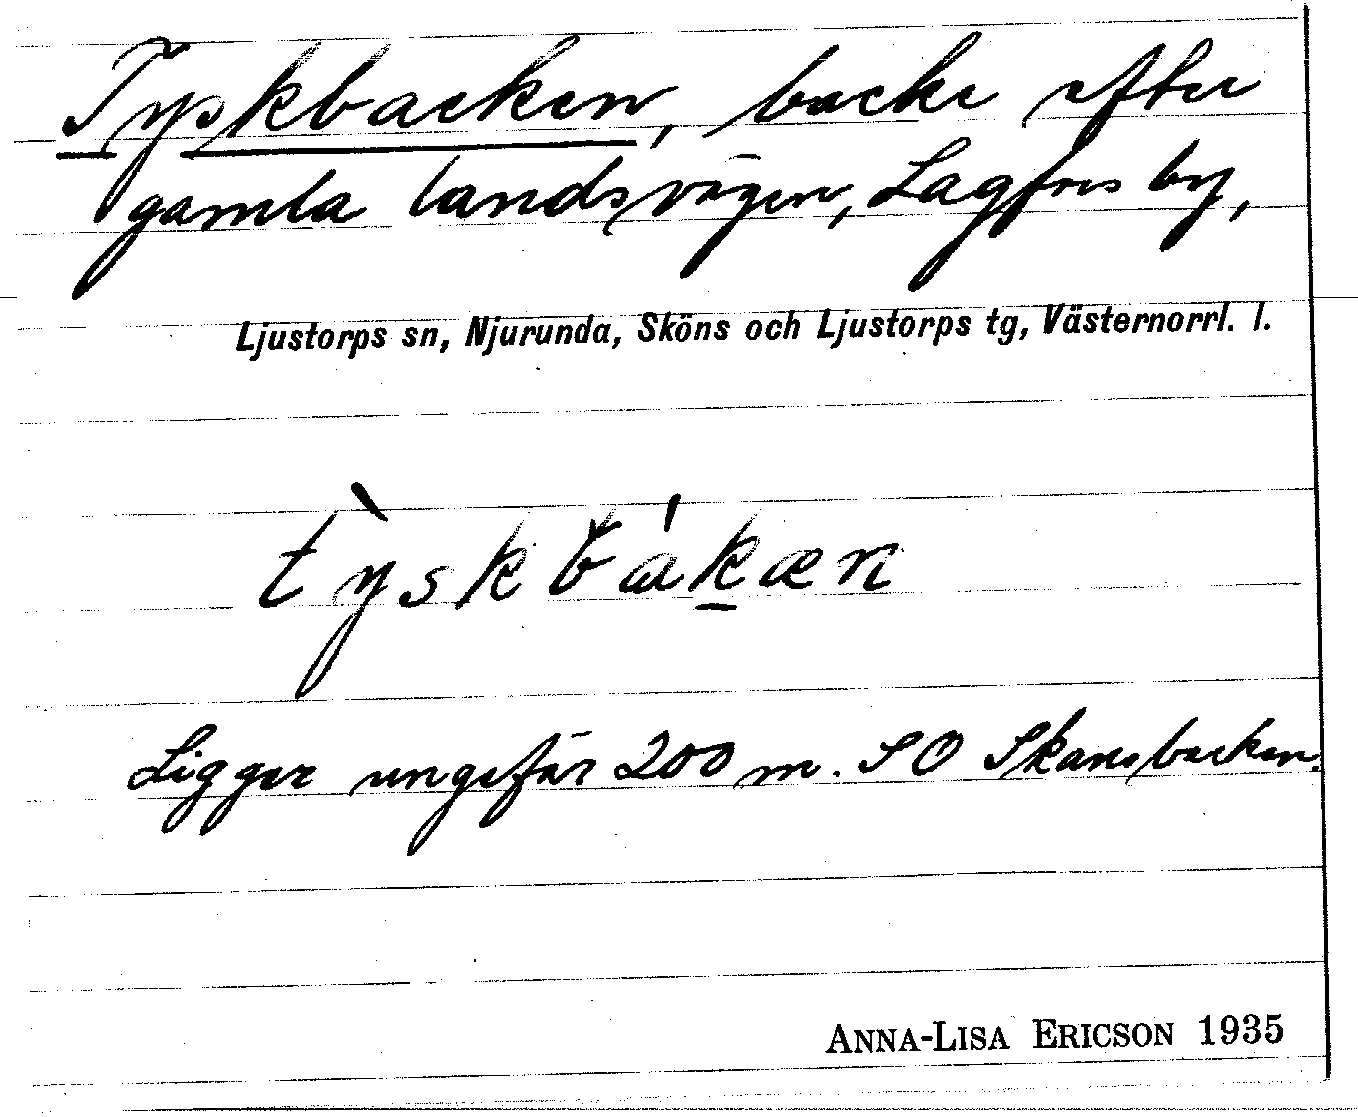 Tyskbacken, backe efter
gamla landsvägen, Lagfors by,
Ljustorps sn, Njurunda, Sköns och Ljustorps tg, Västernorrl. l.
t̀yskbákæn
Ligger ungefär 200 m. SO Skansbacken.
ANNA-LISA ERICSON 1935